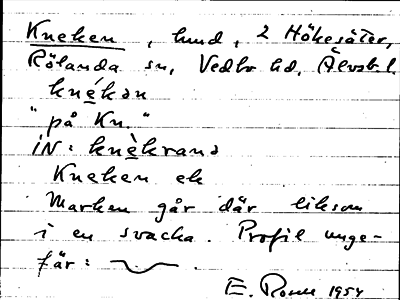 Kneken, hmd, 2 Hökesäter,
Rölanda sn, Vedbo hd, Älvsb. l.
knékən
"på Kn."
iN: knèkrans
Kneken ek
Marken går där liksom
i en svacka. Profil unge-
fär:
E. 1954